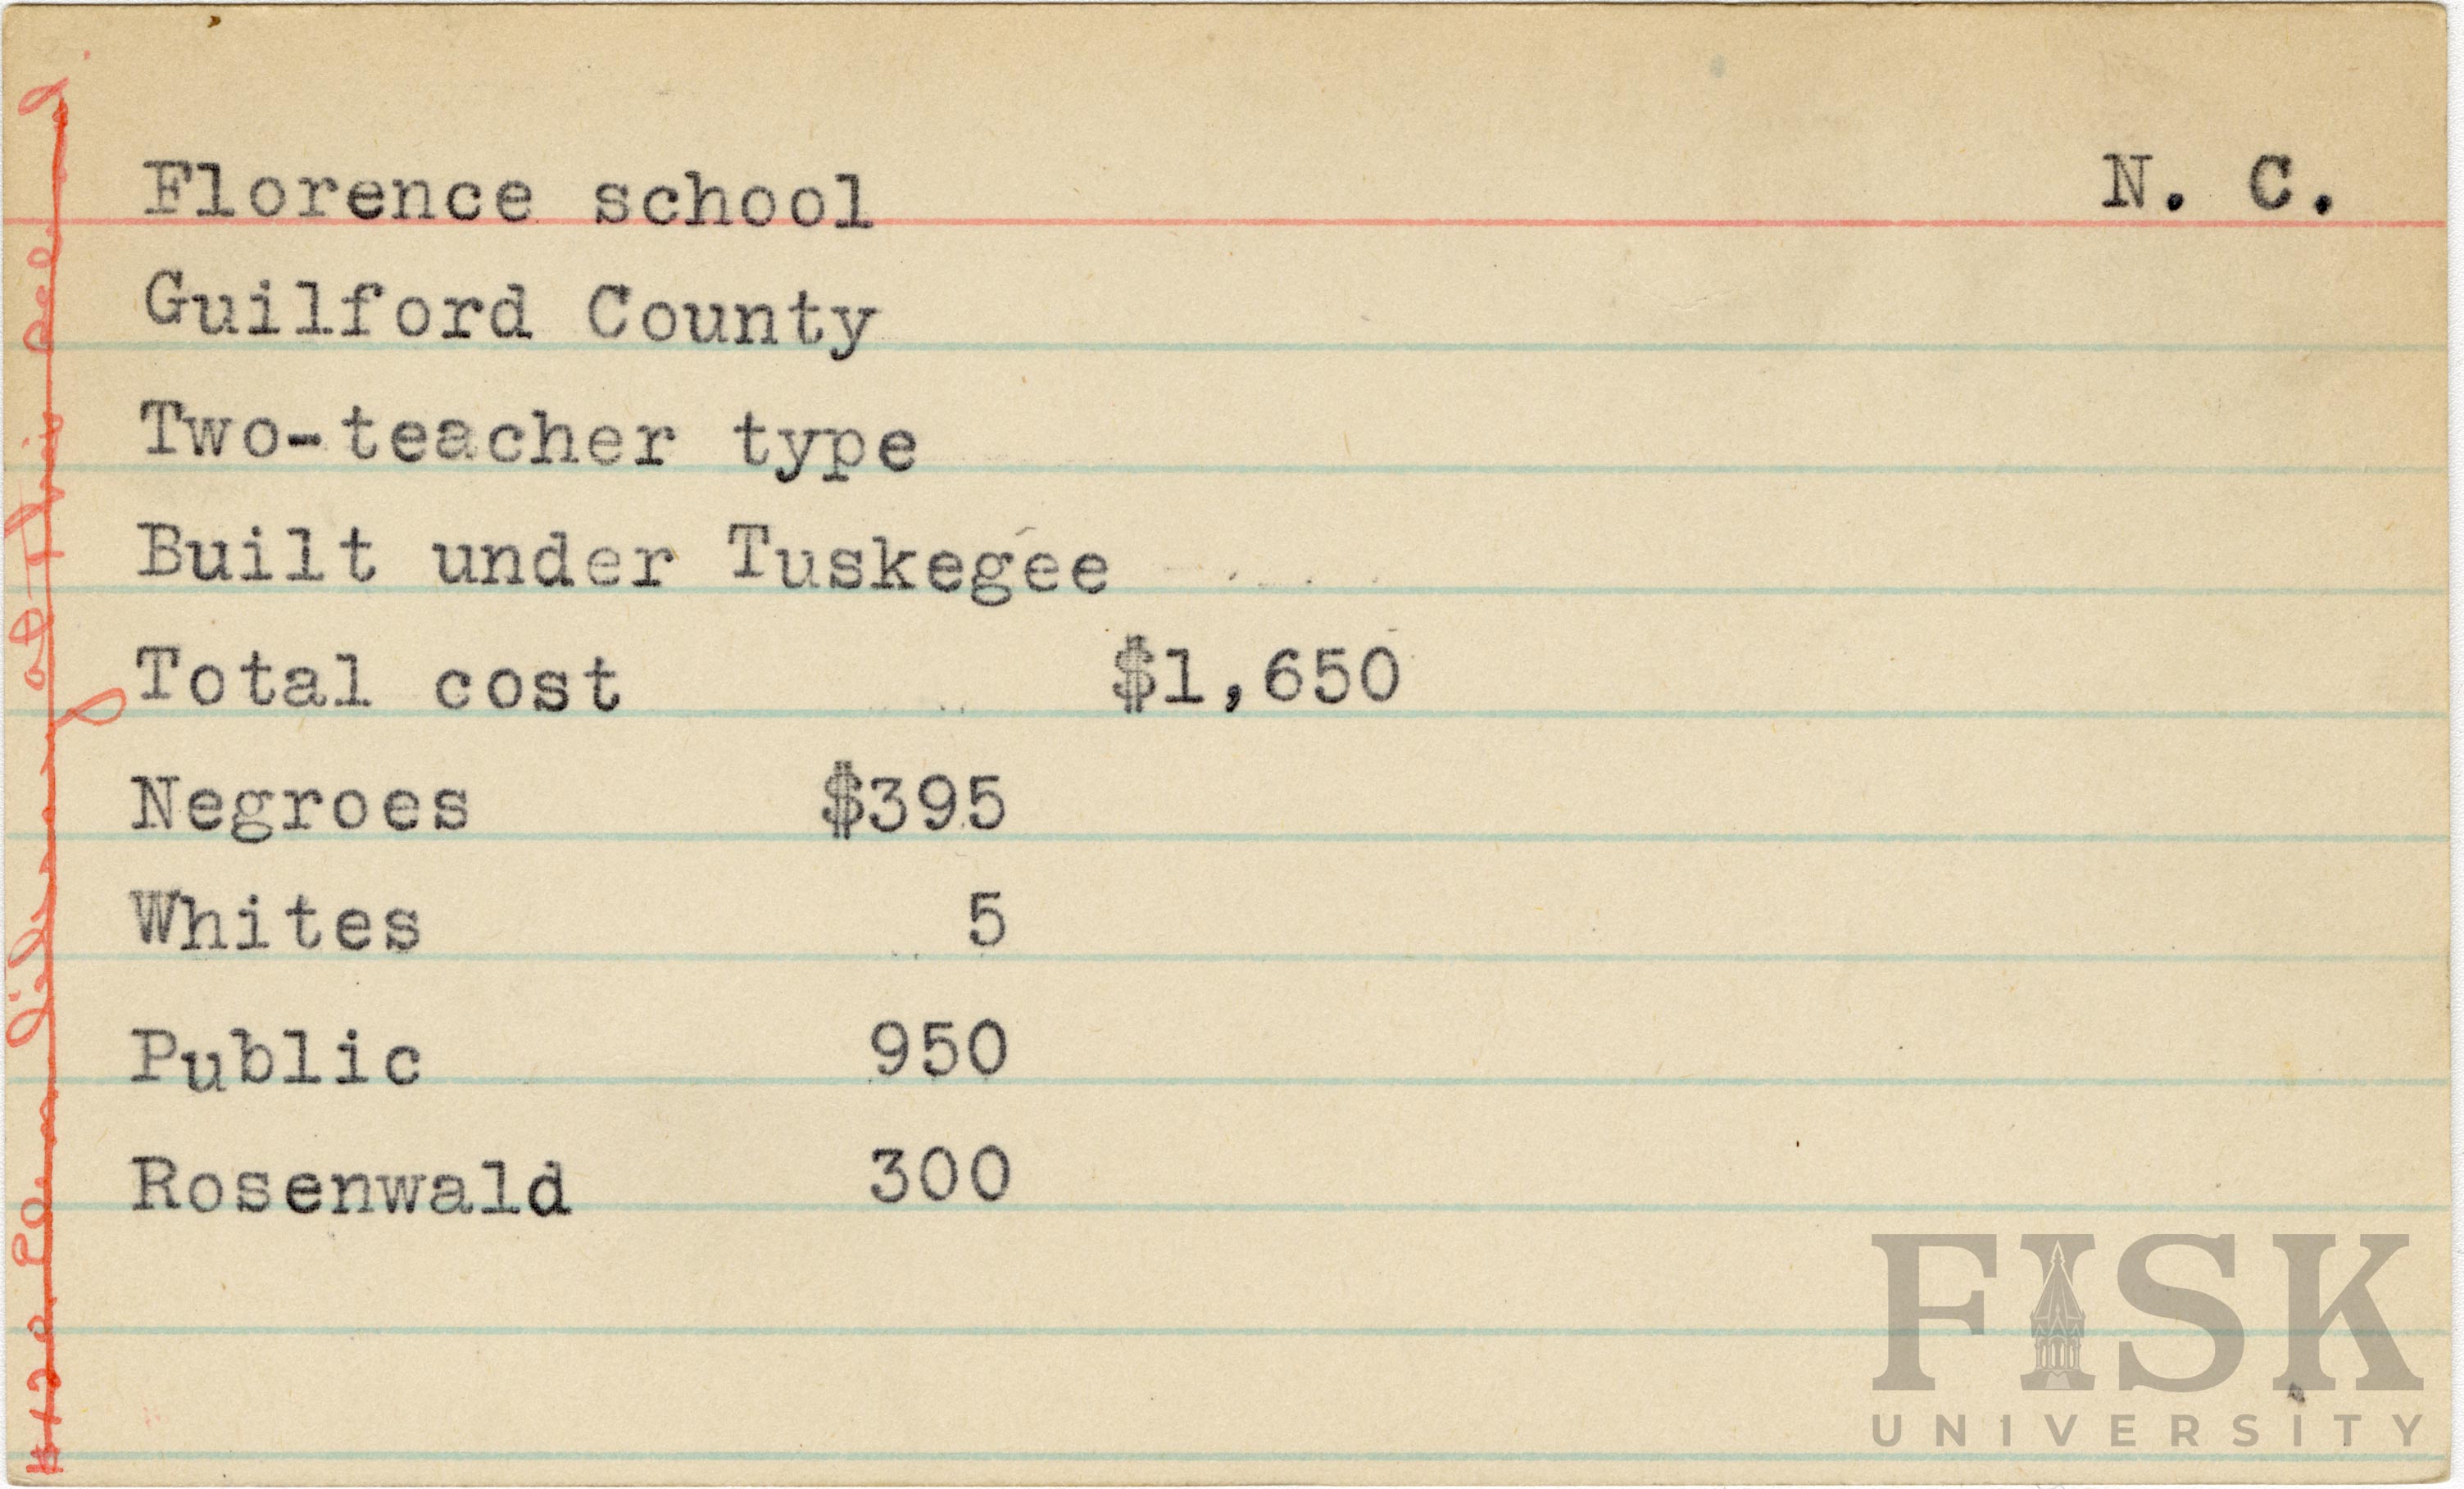 Florence school N. C.
Guilford County
Two-teacher type
Built under Tuskegee
Total cost $1,650
Negroes $395
Whites 5
Public 950
Rosenwald 300
library at this
FISK
UNIVERSITY